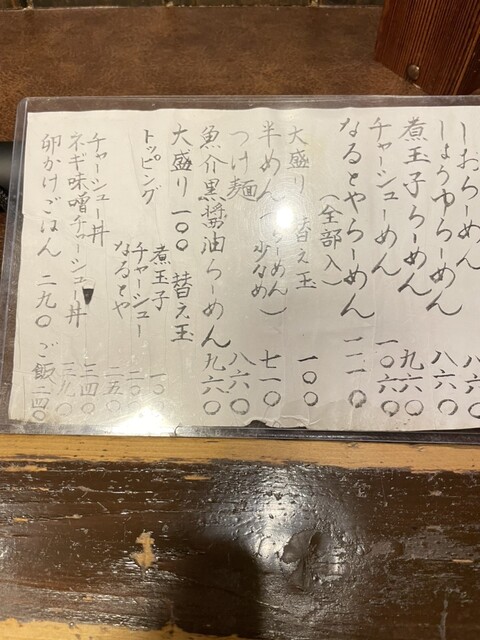 しおらーめん 八六〇
しょうゆらーめん 八六〇
煮玉子らーめん 九六〇
チャーシューめん 一〇六〇
なるとやらーめん 一二一〇
(全部入)
大盛り 替え玉 一〇〇
半めん(らーめん少なめ) 七一〇
つけ麺 八六〇
魚介黒醤油らーめん 九六〇
大盛り 一〇〇 替え玉
トッピング 煮玉子 一〇
チャーシュー 二〇
なるとや 二五〇
チャーシュー丼 三四〇
ネギ味噌チャーシュー丼 三九〇
卵かけごはん 二九〇 ご飯 二四〇